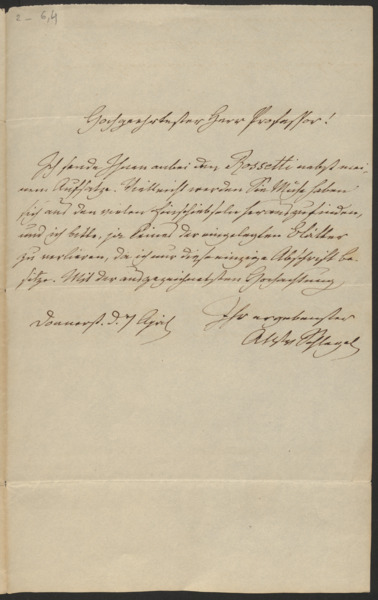 2 – 6,4
Hochgeehrtester Herr Professor!
Ich sende Ihnen anbei den Rossetti nebst mei-
nem Aufsatze. Vielleicht werden Sie Mühe haben
sich aus den vielen Einschiebseln herauszufinden,
und ich bitte, ja keines der eingelegten Blätter
zu verlieren, da ich nur diese einzige Abschrift be-
sitze. Mit der ausgezeichnetsten Hochachtung
Ihr ergebenster
Donnerst. d. 7 April
AWv Schlegel